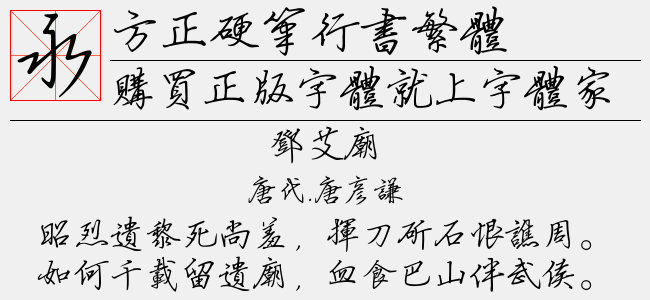 永
方正硬筆行書繁體
購買正版字體就上字體家
鄧艾廟
唐代.唐彦謙
昭烈遺黎死尚羞，揮刀斫石恨譙周。
如何千載留遺廟，血食巴山伴武侯。